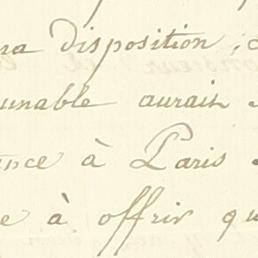 ma disposition,
unable aurait
ance à Paris
e à offrir qu